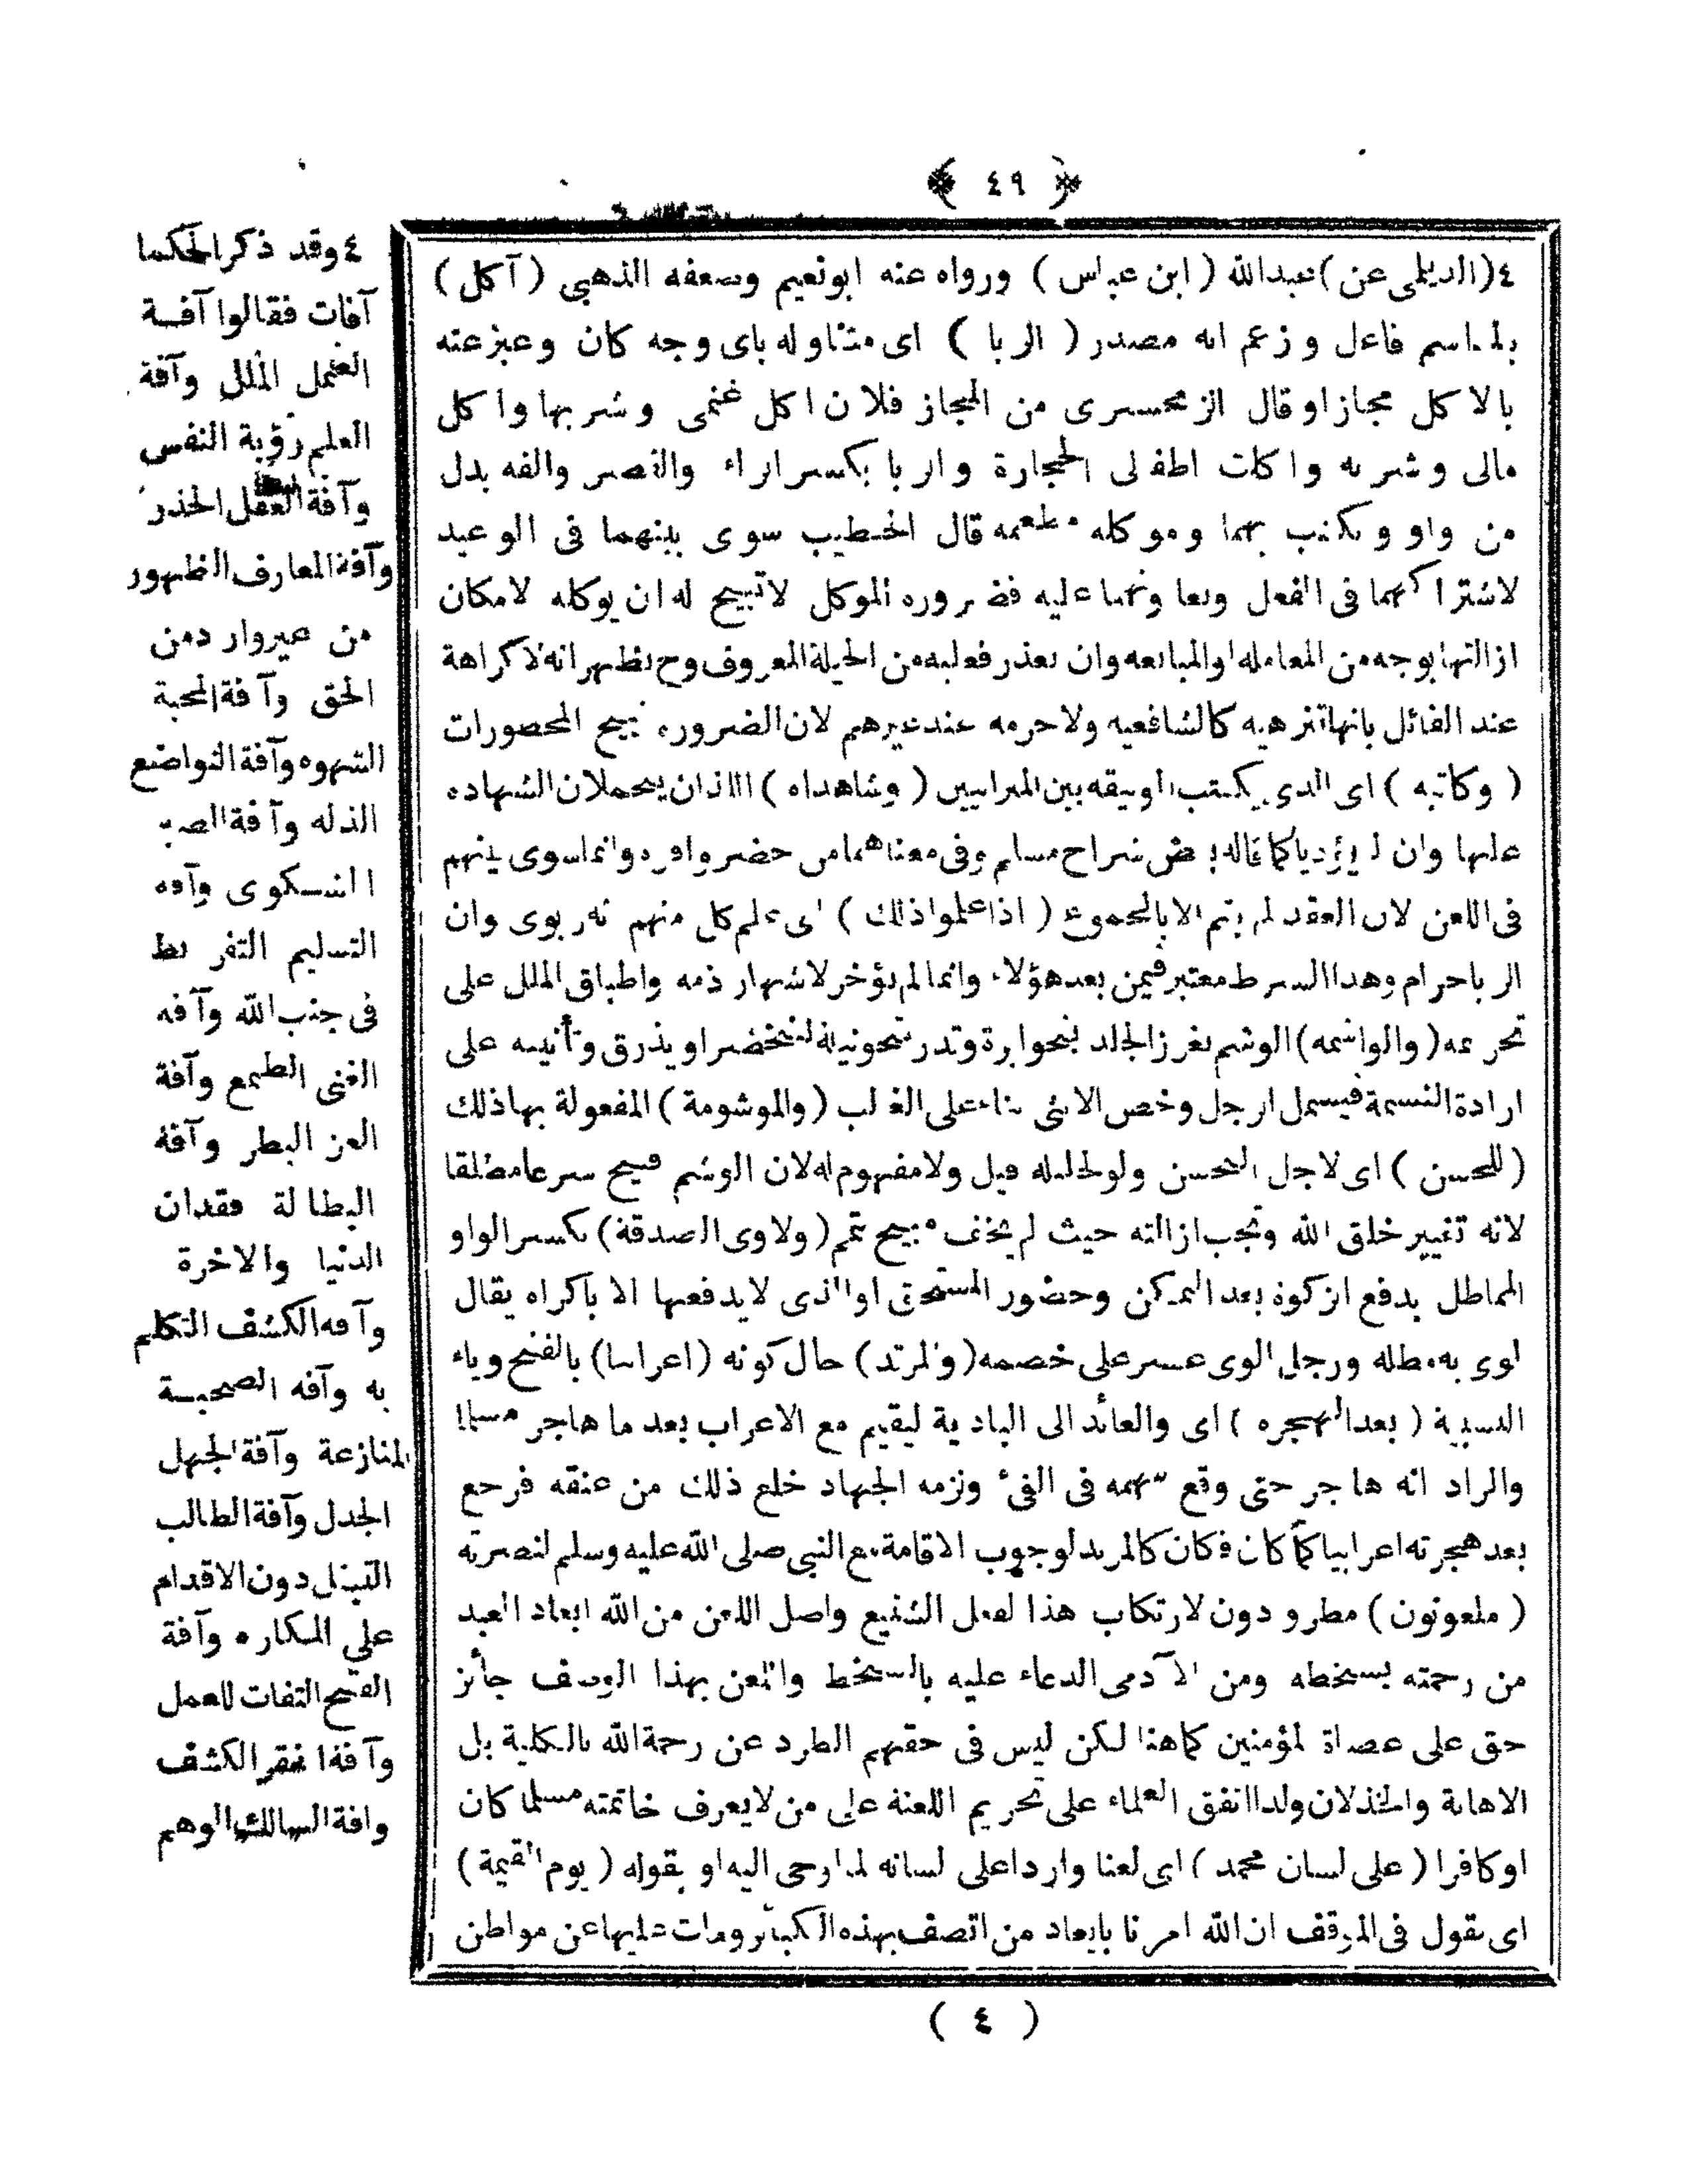 ﴿ ٤٩ ﴾
٤ (الديلمى عن) عبدالله (ابن عباس) ورواه عنه ابونعيم وضعفه الذهبى (آكل)
بالمد اسم فاعل وزعم انه مصدر (الربا) اى متناوله باى وجه كان وعبر عنه
بالاكل مجازا وقال الزمخشرى من المجاز فلان اكل غنمى وشربها واكل
مالى وشربه واكلت اظفارى الحجارة والربا بكسر الراء والقصر والفه بدل
من واو ويكتب بهما وموكله مطعمه قال الخطيب سوى بينهما فى الوعيد
لاشتراكهما فى الفعل وتعاونهما عليه فضرورة الموكل لاتبيح له ان يوكله لامكان
ازالتها بوجه من المعاملة او المبايعة وان تعذر فعليه من الحيلة المعروف وح يظهر انه لاكراهة
عند القائل بانها تنزهية كالشافعية ولاحرمة عند غيرهم لان الضرورة تبيح المحضورات
(وكاتبه) اى الذى يكتب الوثيقة بين المرابيين (وشاهداه) اللذان يتحملان الشهادة
عليها وان لم يؤديا كما قاله بعض شراح مسلم وفى معناهما من حضر واقره وانما سوى بينهم
فى اللعن لان العقد لم يتم الا بالمجموع (اذا علموا ذلك) اى علم كل منهم انه ربوى وان
الربا حرام وهذا الشرط معتبر فيمن بعد هؤلاء وانما لم يؤخر لاشهار ذمه واطباق الملل على
تحريمه (والواشمة) الوشم بغرز الجلد بنحو ابرة وتذر نحو نيلة ليخضر او يزرق وتأنيثه على
ارادة النسمة فيشمل الرجل وخص الانثى بناء على الغالب (والموشومة) المفعولة بها ذلك
(للحسن) اى لاجل التحسن ولو لحليله قيل ولا مفهوم له لان الوشم قبيح شرعا مطلقا
لانه تغيير خلق الله وتجب ازالته حيث لم يخف مبيح تيمم (ولاوى الصدقة) بكسر الواو
المماطل بدفع الزكوة بعد التمكن وحضور المستحق او الذى لايدفعها الا باكراه يقال
لوى به مطله ورجل الوى عسر على خصمه (والمرتد) حال كونه (اعرابيا) بالفتح وياء
النسبية (بعد الهجرة) اى والعائد الى البادية ليقيم مع الاعراب بعد ما هاجر مسلما
والمراد انه هاجر حتى وقع سهمه فى الفئ ولزمه الجهاد خلع ذلك من عنقه فرجع
بعد هجرته اعرابيا كما كان فكان كالمرتد لوجوب الاقامة مع النبى صلى الله عليه وسلم لنصرته
(ملعونون) مطرودون لارتكاب هذا الفعل الشنيع واصل اللعن من الله ابعاد العبد
من رحمته بسخطه ومن الآدمى الدعاء عليه بالسخط واللعن بهذا الوصف جائز
حتى على عصاة المؤمنين كما هنا لكن ليس فى حقهم الطرد عن رحمة الله بالكلية بل
الاهانة والخذلان ولذا اتفق العلماء على تحريم اللعنة على من لايعرف خاتمته مسلما كان
اوكافرا (على لسان محمد) اى لعنا واردا على لسانه لما اوحى اليه او بقوله (يوم القيمة)
اى يقول فى الموقف ان الله امرنا بابعاد من اتصف بهذه الكبائر ومات عليها عن مواطن
( ٤ )
٤ وقد ذكر الحكما
آفات فقالوا آفة
العمل الملل وآفة
العلم رؤية النفس
وآفة العقل الحذر
وآفة المعارف الظهور
من غير وارد من
الحق وآفة المحبة
الشهوه وآفة التواضع
الذله وآفة الصبر
الشكوى وآفه
التسليم التفريط
فى جنب الله وآفه
الغنى الطمع وآفة
العز البطر وآفة
البطالة فقدان
الدنيا والاخرة
وآفه الكشف التكلم
به وآفه الصحبة
المنازعة وآفة الجهل
الجدل وآفة الطالب
التنزل دون الاقدام
على المكاره وآفة
الفتح التفات للعمل
وآفة الفقر الكشف
وافة السالك الوهم